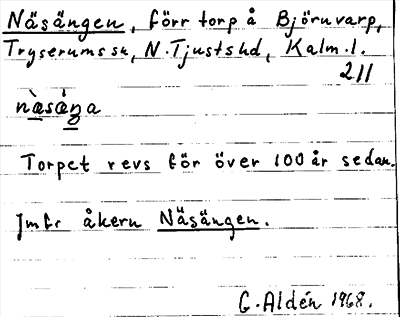 Näsängen, förr torp å Björnvarp,
Tryserums sn, N. Tjusts hd, Kalm. l.
211
nàsáŋa
Torpet revs för över 100 år sedan.
Jmfr åkern Näsängen.
G. Aldén 1968.